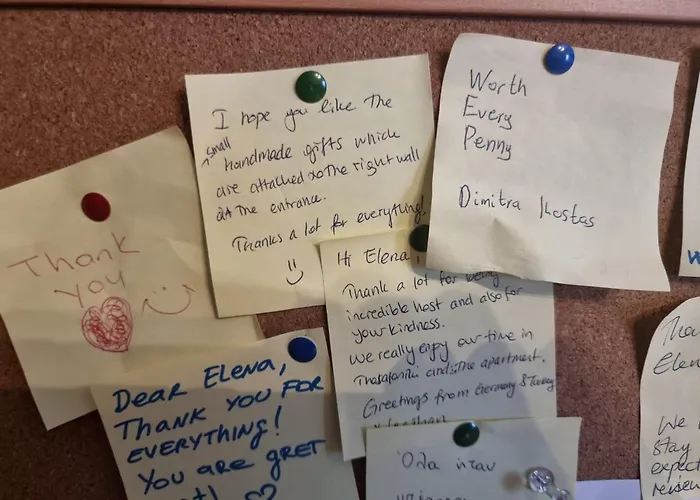 I hope you like the
small
handmade gifts which
are attached to the right wall
at the entrance.
Thanks a lot for everything!
Worth
Every
Penny
Dimitra
Thank
you
Hi Elena,
Thank a lot for being
incredible host and also for
your kindness.
We really enjoy our time in
and the apartment.
Greetings from Germany &
DEAR ELENA,
THANK YOU FOR
EVERYTHING!
YOU ARE GRET
Όλα ήταν
Elen
We
stay
expect